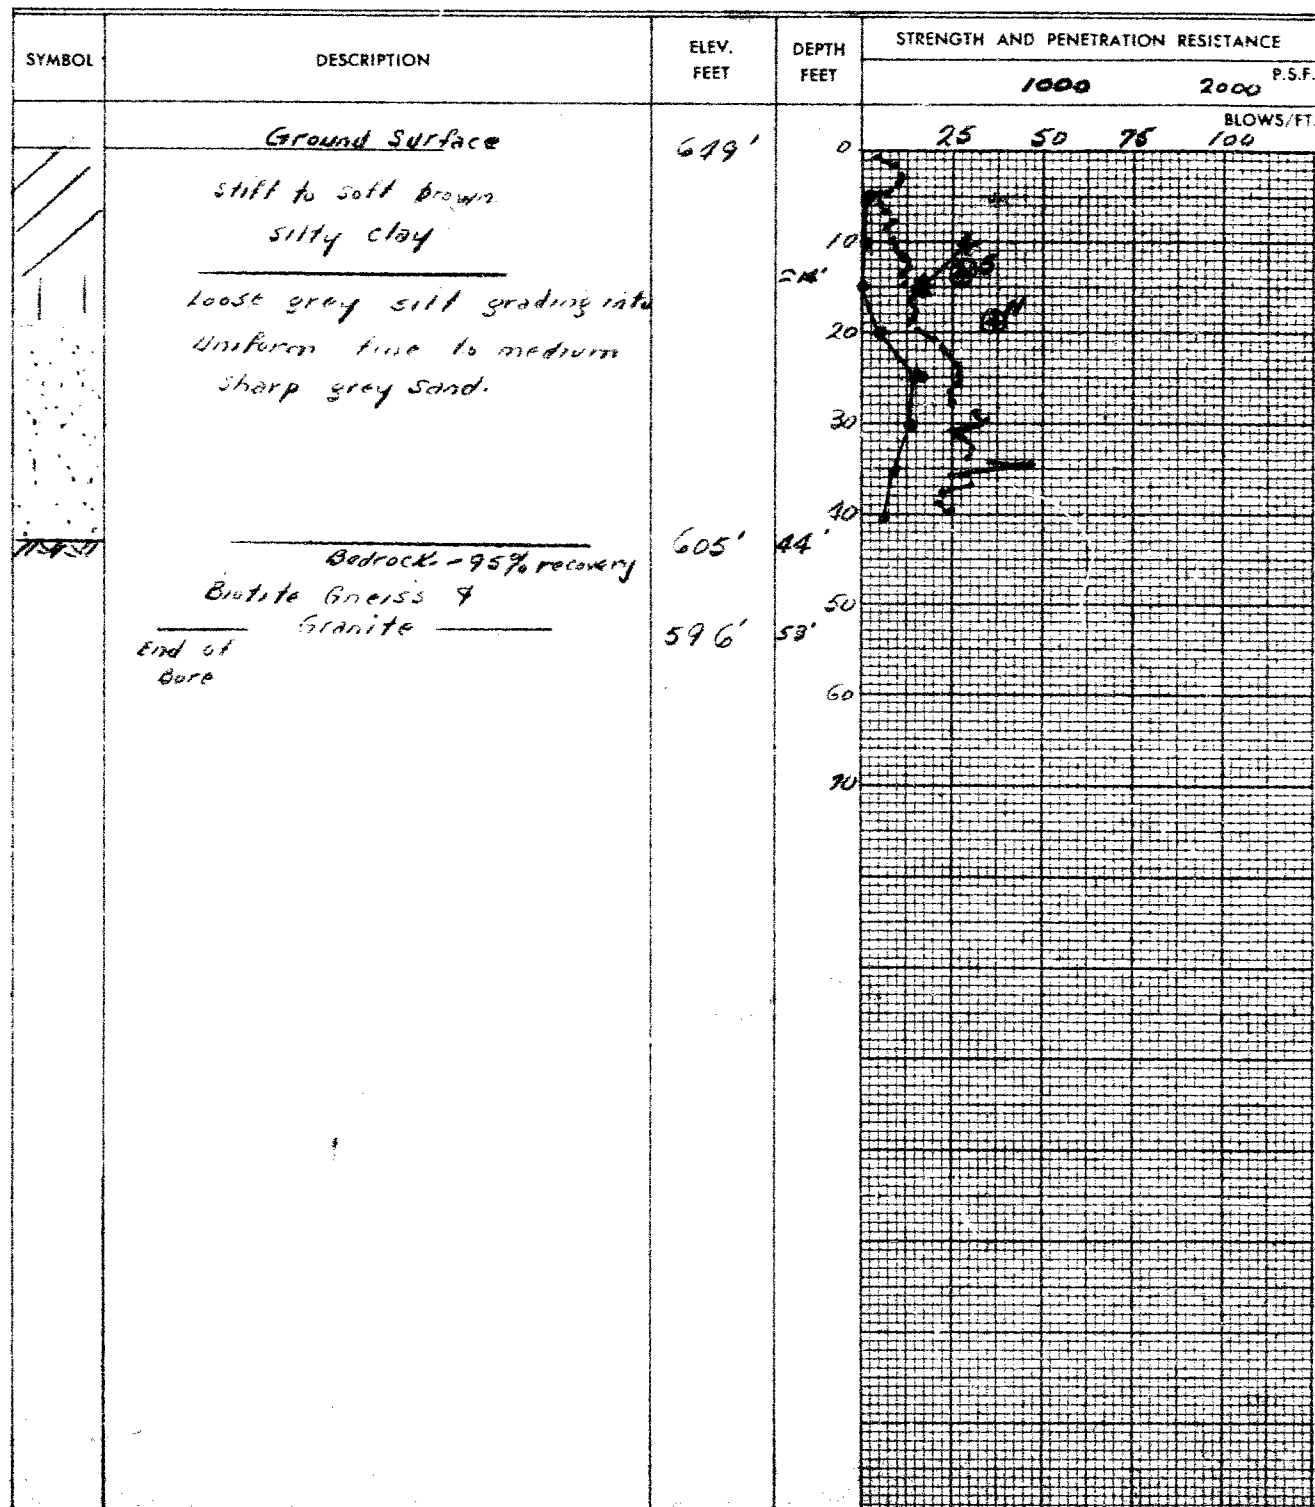 SYMBOL
DESCRIPTION
ELEV. FEET
DEPTH FEET
STRENGTH AND PENETRATION RESISTANCE
1000 2000 P.S.F.
BLOWS/FT.
25 50 75 100
Ground Surface 649' 0
stiff to soft brown
silty clay
10
Loose grey silt grading into
Uniform fine to medium
sharp grey sand.
20
30
40
605' 44'
Bedrock - 95% recovery
Biotite Gneiss &
Granite
50
596' 53'
End of
Bore
60
70